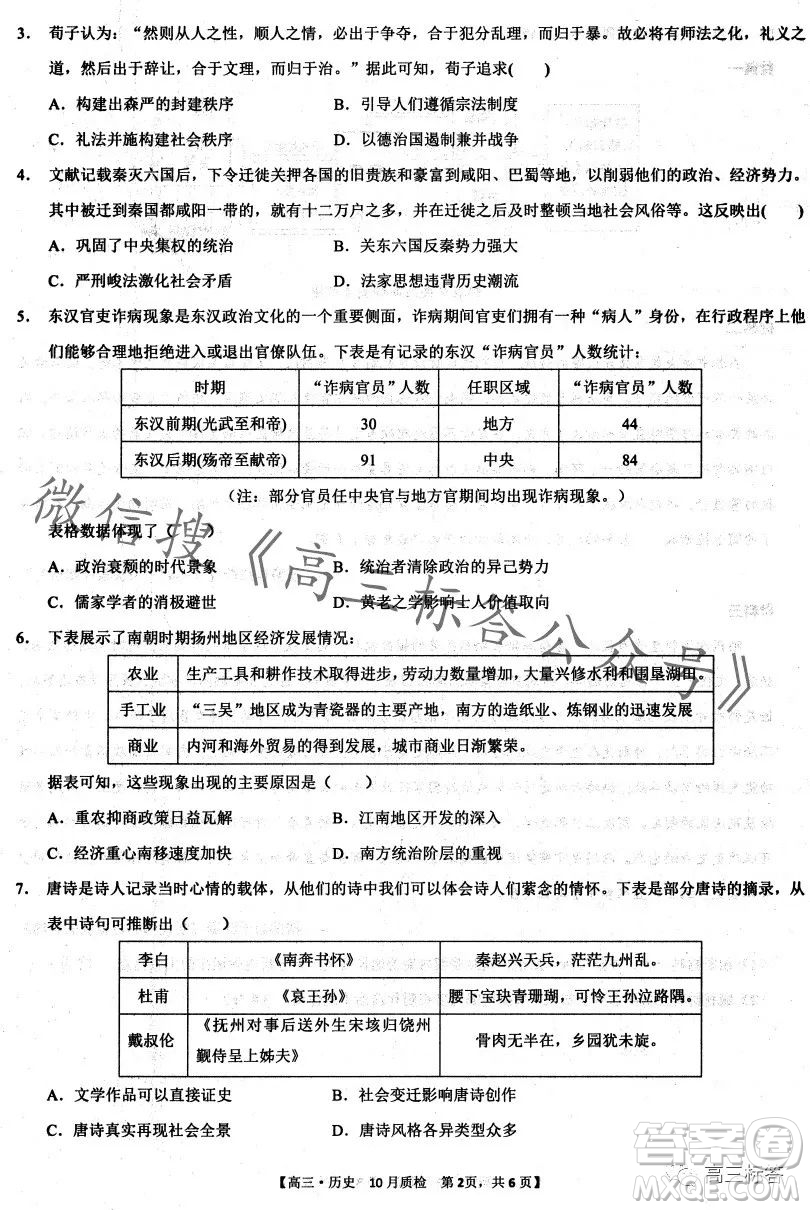 3. 荀子认为：“然则从人之性，顺人之情，必出于争夺，合于犯分乱理，而归于暴。故必将有师法之化，礼义之
道，然后出于辞让，合于文理，而归于治。”据此可知，荀子追求(　　)
A．构建出森严的封建秩序　　B．引导人们遵循宗法制度
C．礼法并施构建社会秩序　　D．以德治国遏制兼并战争
4. 文献记载秦灭六国后，下令迁徙关押各国的旧贵族和豪富到咸阳、巴蜀等地，以削弱他们的政治、经济势力。
其中被迁到秦国都咸阳一带的，就有十二万户之多，并在迁徙之时及时整顿当地社会风俗等。这反映出(　　)
A．巩固了中央集权的统治　　B．关东六国反秦势力强大
C．严刑峻法激化社会矛盾　　D．法家思想违背历史潮流
5. 东汉官吏诈病现象是东汉政治文化的一个重要侧面，诈病期间官吏们拥有一种“病人”身份，在行政程序上他
们能够合理地拒绝进入或退出官僚队伍。下表是有记录的东汉“诈病官员”人数统计：
时期　“诈病官员”人数　任职区域　“诈病官员”人数
东汉前期(光武至和帝)　30　地方　44
东汉后期(殇帝至献帝)　91　中央　84
（注：部分官员任中央官与地方官期间均出现诈病现象。）
表格数据体现了（　　）
A．政治衰颓的时代景象　　B．统治者清除政治的异己势力
C．儒家学者的消极避世　　D．黄老之学影响士人价值取向
6. 下表展示了南朝时期扬州地区经济发展情况：
农业　生产工具和耕作技术取得进步，劳动力数量增加，大量兴修水利和围垦湖田。
手工业　“三吴”地区成为青瓷器的主要产地，南方的造纸业、炼钢业的迅速发展
商业　内河和海外贸易的得到发展，城市商业日渐繁荣。
据表可知，这些现象出现的主要原因是（　　）
A．重农抑商政策日益瓦解　　B．江南地区开发的深入
C．经济重心南移速度加快　　D．南方统治阶层的重视
7. 唐诗是诗人记录当时心情的载体，从他们的诗中我们可以体会诗人们萦念的情怀。下表是部分唐诗的摘录，从
表中诗句可推断出（　　）
李白　《南奔书怀》　秦赵兴天兵，茫茫九州乱。
杜甫　《哀王孙》　腰下宝玦青珊瑚，可怜王孙泣路隅。
戴叔伦　《抚州对事后送外生宋垓归饶州
觐侍呈上姊夫》　骨肉无半在，乡园犹未旋。
A．文学作品可以直接证史　　B．社会变迁影响唐诗创作
C．唐诗真实再现社会全景　　D．唐诗风格各异类型众多
【高三·历史　10月质检　第2页，共6页】
微信搜《高三标答公众号》
答案卷
高三标答